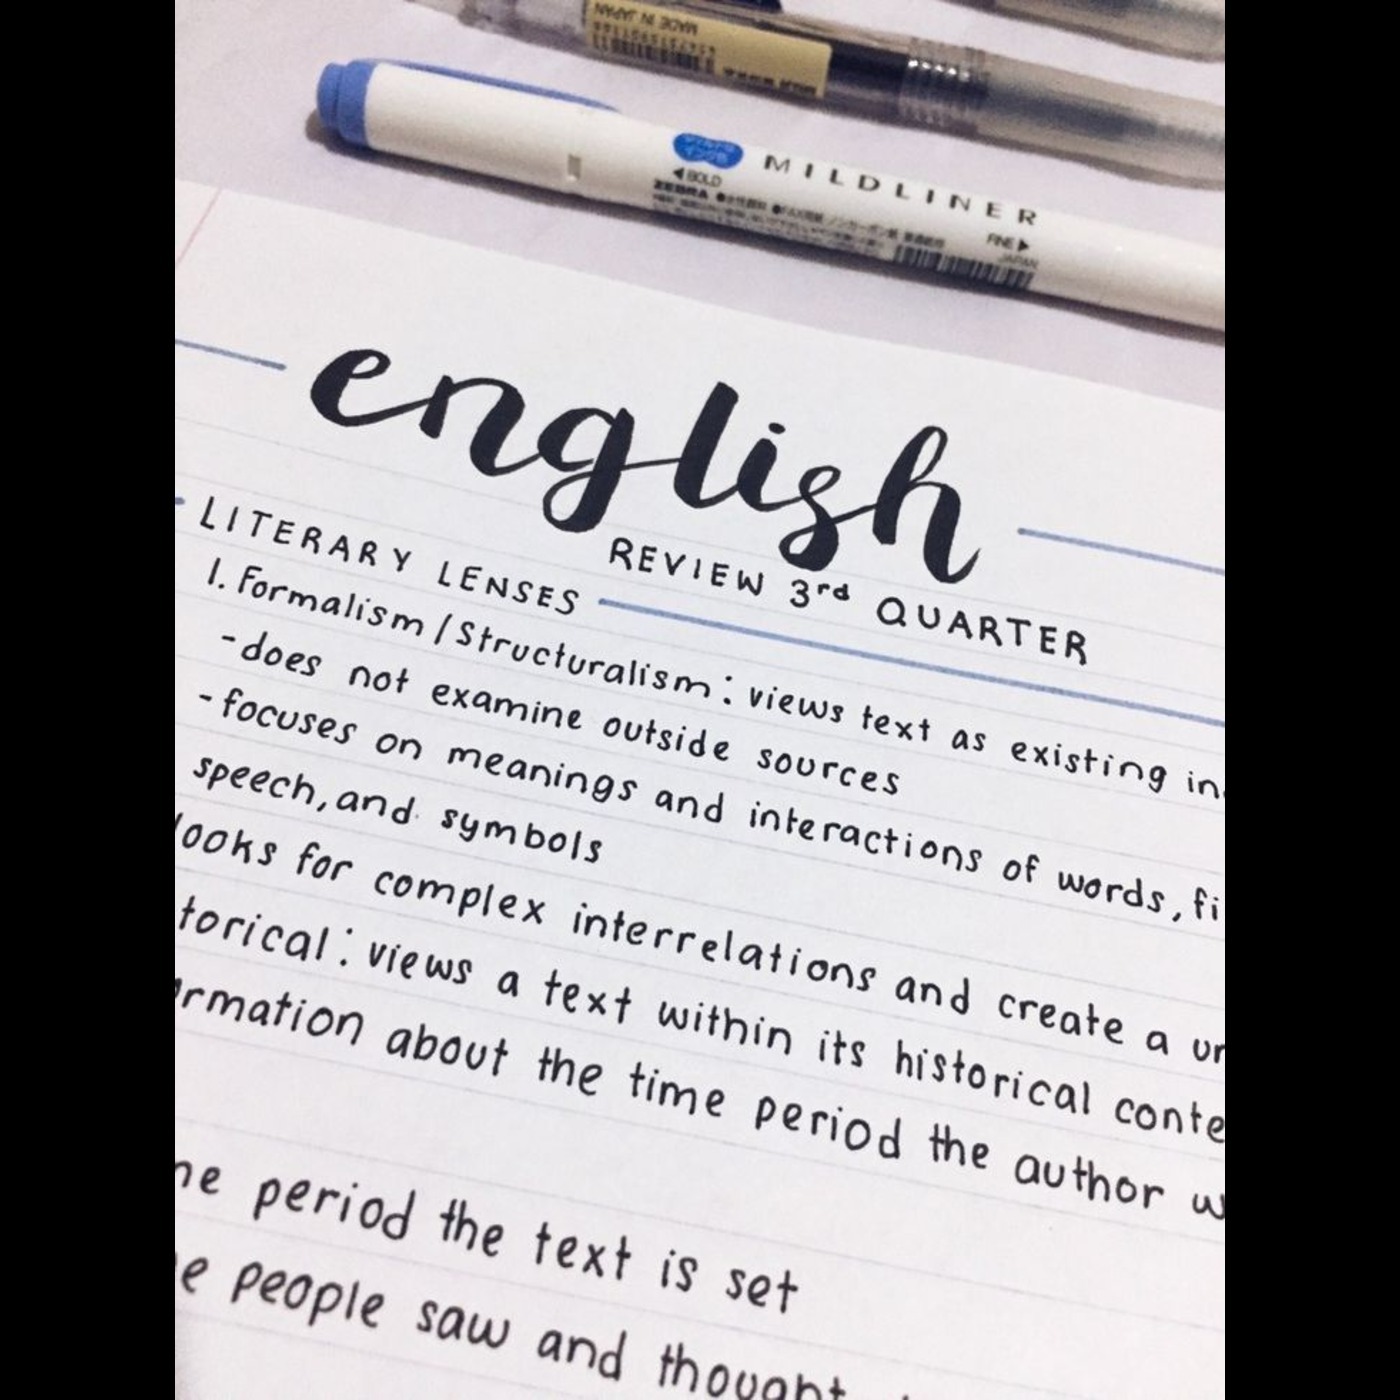 MADE IN JAPAN
MILDLINER
◀BOLD
ZEBRA
FINE▶
JAPAN
english
REVIEW 3rd QUARTER
LITERARY LENSES
1. Formalism/Structuralism: views text as existing
-does not examine outside sources
-focuses on meanings and interactions of words,
speech, and symbols
looks for complex interrelations and create a
views a text within its historical
about the time period the author
period the text is set
people saw and thought